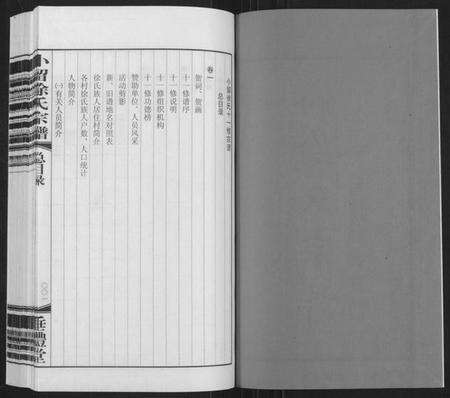 小留徐氏十一修宗谱
总目录
卷一
贺词、贺画
十一修谱序
十一修说明
十一修组织机构
十一修功德榜
赞助单位、人员风采
活动剪影
新、旧谱地名对照表
徐氏族人居住村简介
各村徐氏族人户数、人口统计
人物简介
(一)有关人员简介
小留徐氏宗谱
总目录
垂丰堂